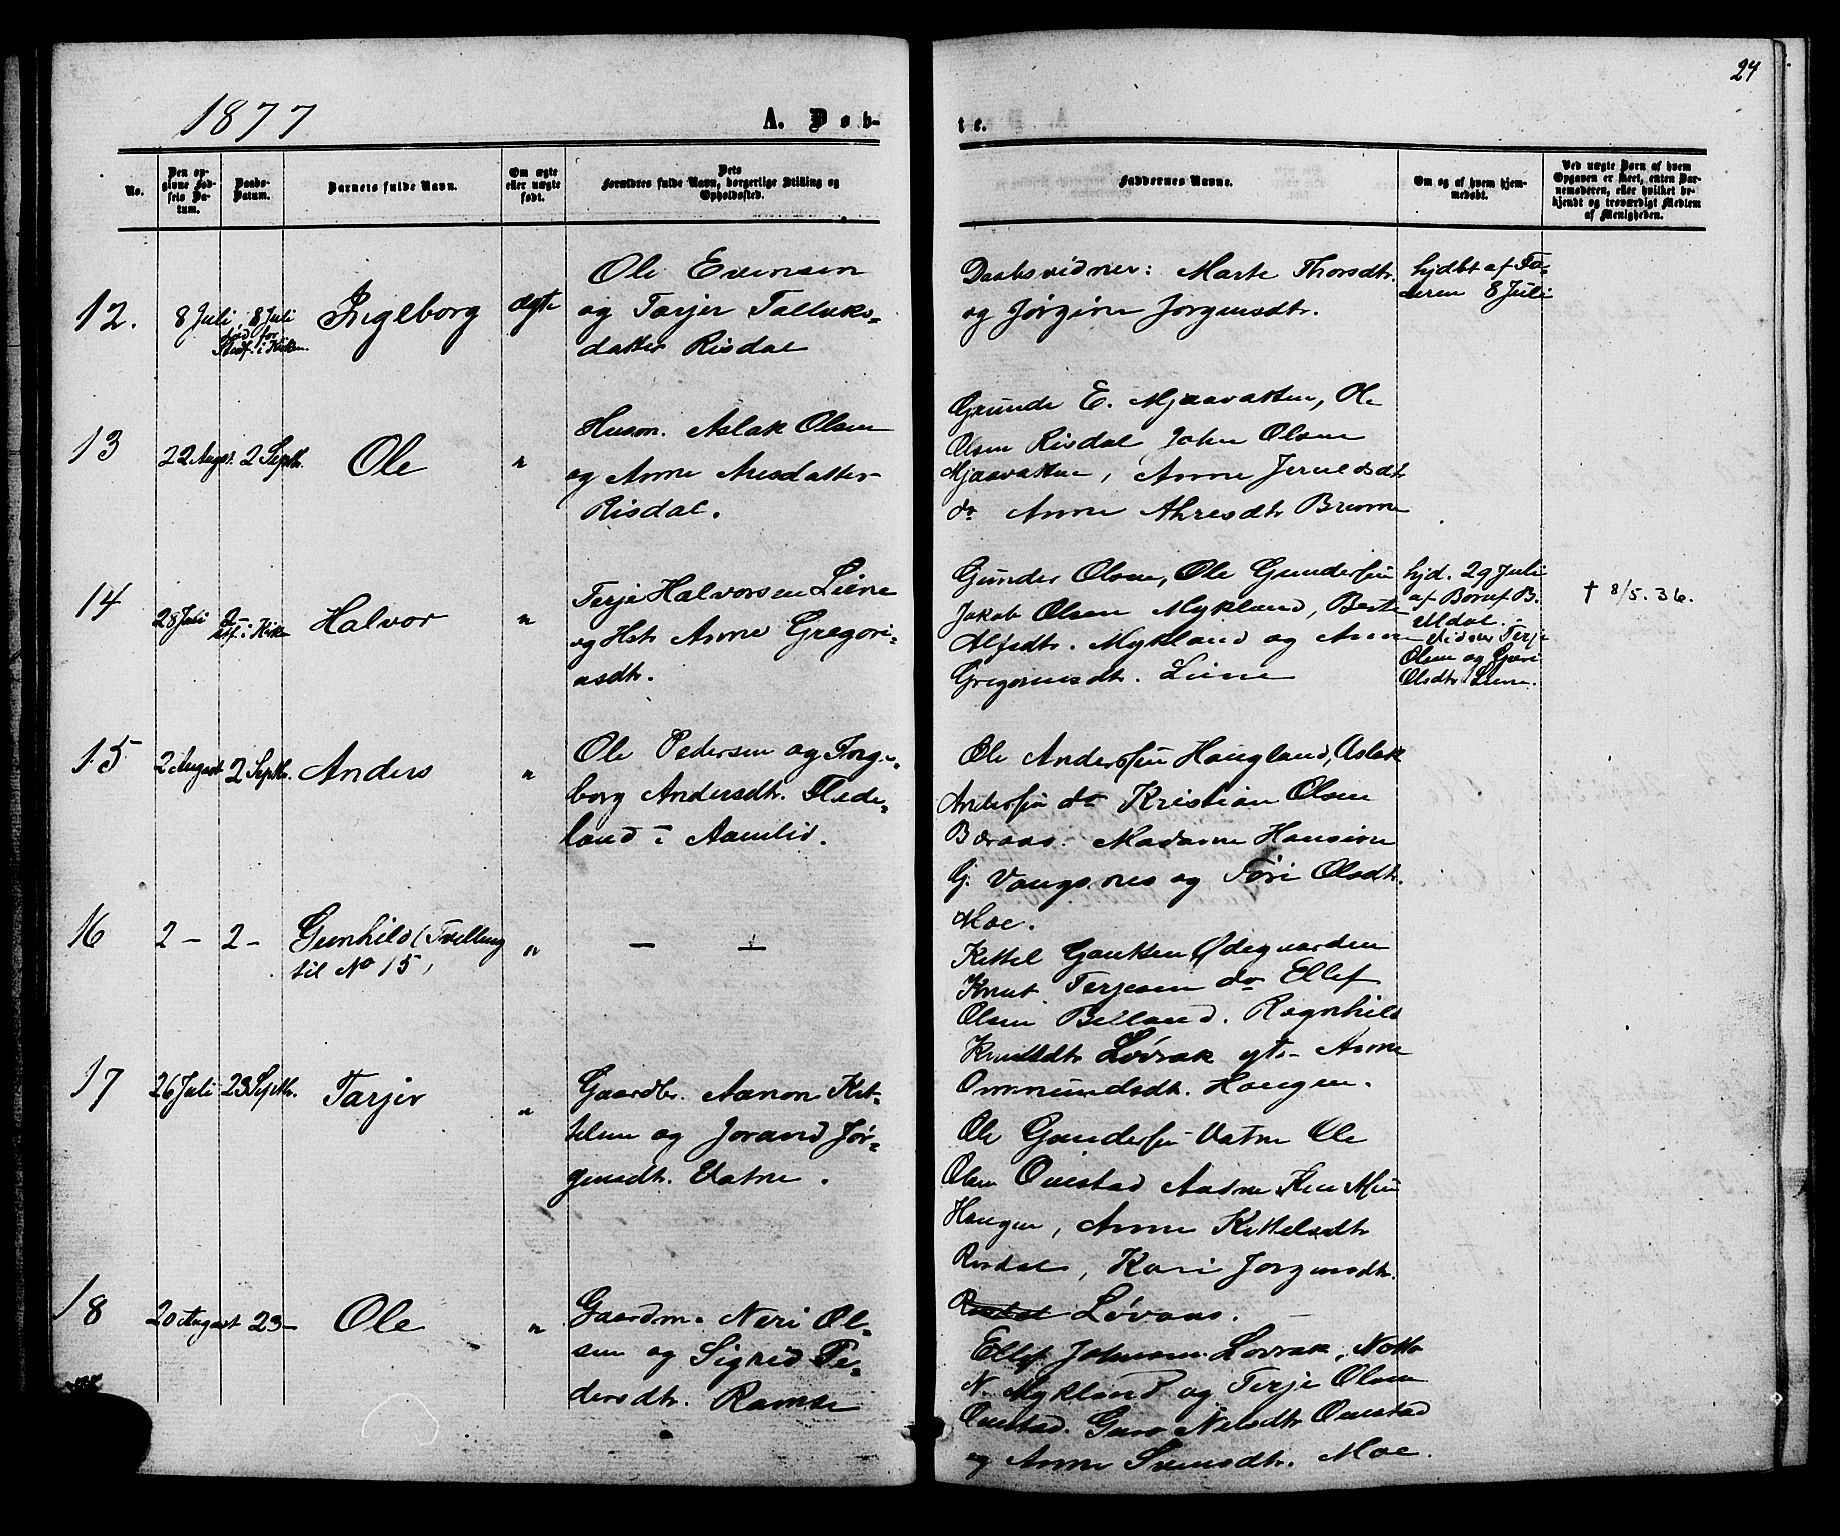 24
1877
A. Døb-
te.
No.
Den op-
givne Fød-
sels Da-
tum.
Daabs-
Datum.
Barnets fulde Navn.
Om ægte
eller uægte
født.
Dets
Forældres fulde Navn, borgerlige Stilling og
Opholdssted.
Faddernes Navne.
Om og af hvem hjem-
medøbt.
Ved uægte Børn af hvem
Opgaven er skeet, enten Bar-
nemoderen, eller hvilket be-
kjendt og troværdigt Medlem
af Menigheden.
12.
8 Juli
8 Juli
i Kirken.
Ingeborg
ægte
Ole Evensen
og Tarjer Tallaks-
datter Risdal
Daabsvidner: Marte Thorsdtr.
og Jørgine Jørgensdtr.
hjdbt af Fa-
deren 8 Juli
13
22 August. 2 Septbr.
Ole
"
Husm. Aslak Olsen
og Anne Aresdatter
Risdal.
Gunde E. Mjaavatten, Ole
Olsen Risdal John Olsen
Mjaavatten, Anne Jereldsdtr
do Anne Ahresdtr Bremne
14
28 Juli
stf. i Kirke
Halvor
"
Terje Halvorsen Liene
og Hstr Anne Gregori-
asdtr.
Gunder Olsen, Ole Gundersen
Jakob Olsen Mykland, Berte
Alfsdtr. Mykland og Anne
Gregoriusdtr. Liene
hjd. 29 Juli
af Boraf B.
Uldal.
Vidner Terje
Olsen og Guri
Olsdtr Liene.
† 8/5. 36.
15
2 August 2 Septbr.
Anders
"
Ole Pedersen og Inge-
borg Andersdtr. Flade-
land i Aamlid.
Ole Andersen Haugland, Aslak
Andersen do Kristian Olsen
Bæraas. Madame Hansine
G. Vangsnes og Turi Olsdtr.
Moe.
16
2 — 2 —
Gunhild (Tvilling
til No 15)
"
— —
Kittel Gautsen Ødegaarden
Knut Terjesen do Ellef
Olsen Belland. Ragnhild
Knutsdtr Løvrak og Anne
Ommundsdtr. Haugen.
17
26 Juli 23 Septbr.
Tarjer
"
Gaardbr. Aanon Kit-
telsen og Jorand Jør-
gensdtr. Vatne.
Ole Gundersen Vatne Ole
Olsen Ovestad Aadne Knutsen
Haugen, Anne Kittelsdtr
Risdal, Kari Jørgensdtr.
Løvaas.
18
20 August 23 —
Ole
"
Gaardm. Neri Ol-
sen og Sigrid Pe-
dersdtr. Ramse
Ellef Johnsen Løvrak, Notto
N. Mykland og Terje Olsen
Ovestad. Guro Nilsdtr Ovestad
og Anne Svensdtr. Moe.